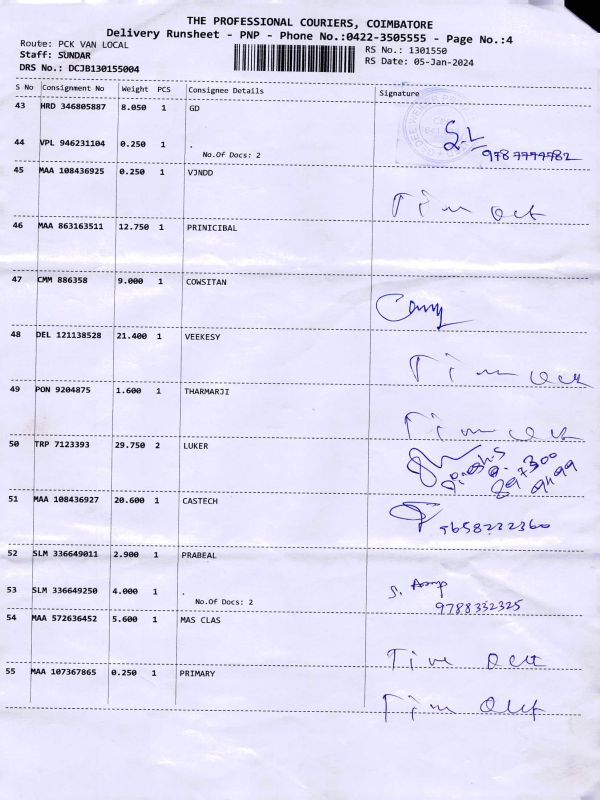 THE PROFESSIONAL COURIERS, COIMBATORE
Delivery Runsheet - PNP - Phone No.:0422-3505555 - Page No.:4
Route: PCK VAN LOCAL
Staff: SUNDAR
DRS No.: DCJB130155004
RS No.: 1301550
RS Date: 05-Jan-2024
S No Consignment No Weight PCS Consignee Details Signature
43 HRD 346805887 8.050 1 GD
S.L
44 VPL 946231104 0.250 1 .
No.Of Docs: 2
45 MAA 108436925 0.250 1 VJNDD
Tim out
46 MAA 863163511 12.750 1 PRINICIBAL
47 CMM 886358 9.000 1 COWSITAN
48 DEL 121138528 21.400 1 VEEKESY
Tim out
49 PON 9204875 1.600 1 THARMARJI
Tim out
50 TRP 7123393 29.750 2 LUKER
51 MAA 108436927 20.600 1 CASTECH
9658222360
52 SLM 336649011 2.900 1 PRABEAL
53 SLM 336649250 4.000 1 .
No.Of Docs: 2
9788332325
54 MAA 572636452 5.600 1 MAS CLAS
Tim out
55 MAA 107367865 0.250 1 PRIMARY
Tim out